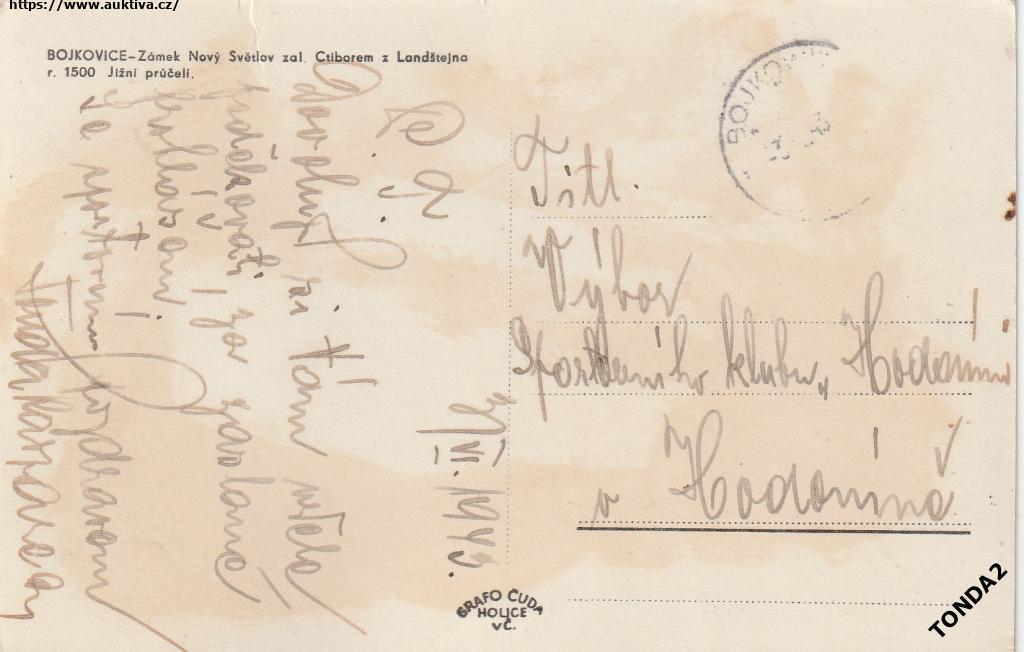 https://www.auktiva.cz/
BOJKOVICE–Zámek Nový Světlov zal. Ctiborem z Landštejna
r. 1500 Jižní průčelí.
9/VI. 1943.
P. T.
Dovoluji si Vám vřele
poděkovati za zaslané
se sportovním pozdravem
Titl.
Výbor
Sportovního klubu „Hodonín"
v Hodoníně
BOJKOVICE
GRAFO ČUDA
HOLICE
VČ.
TONDA2